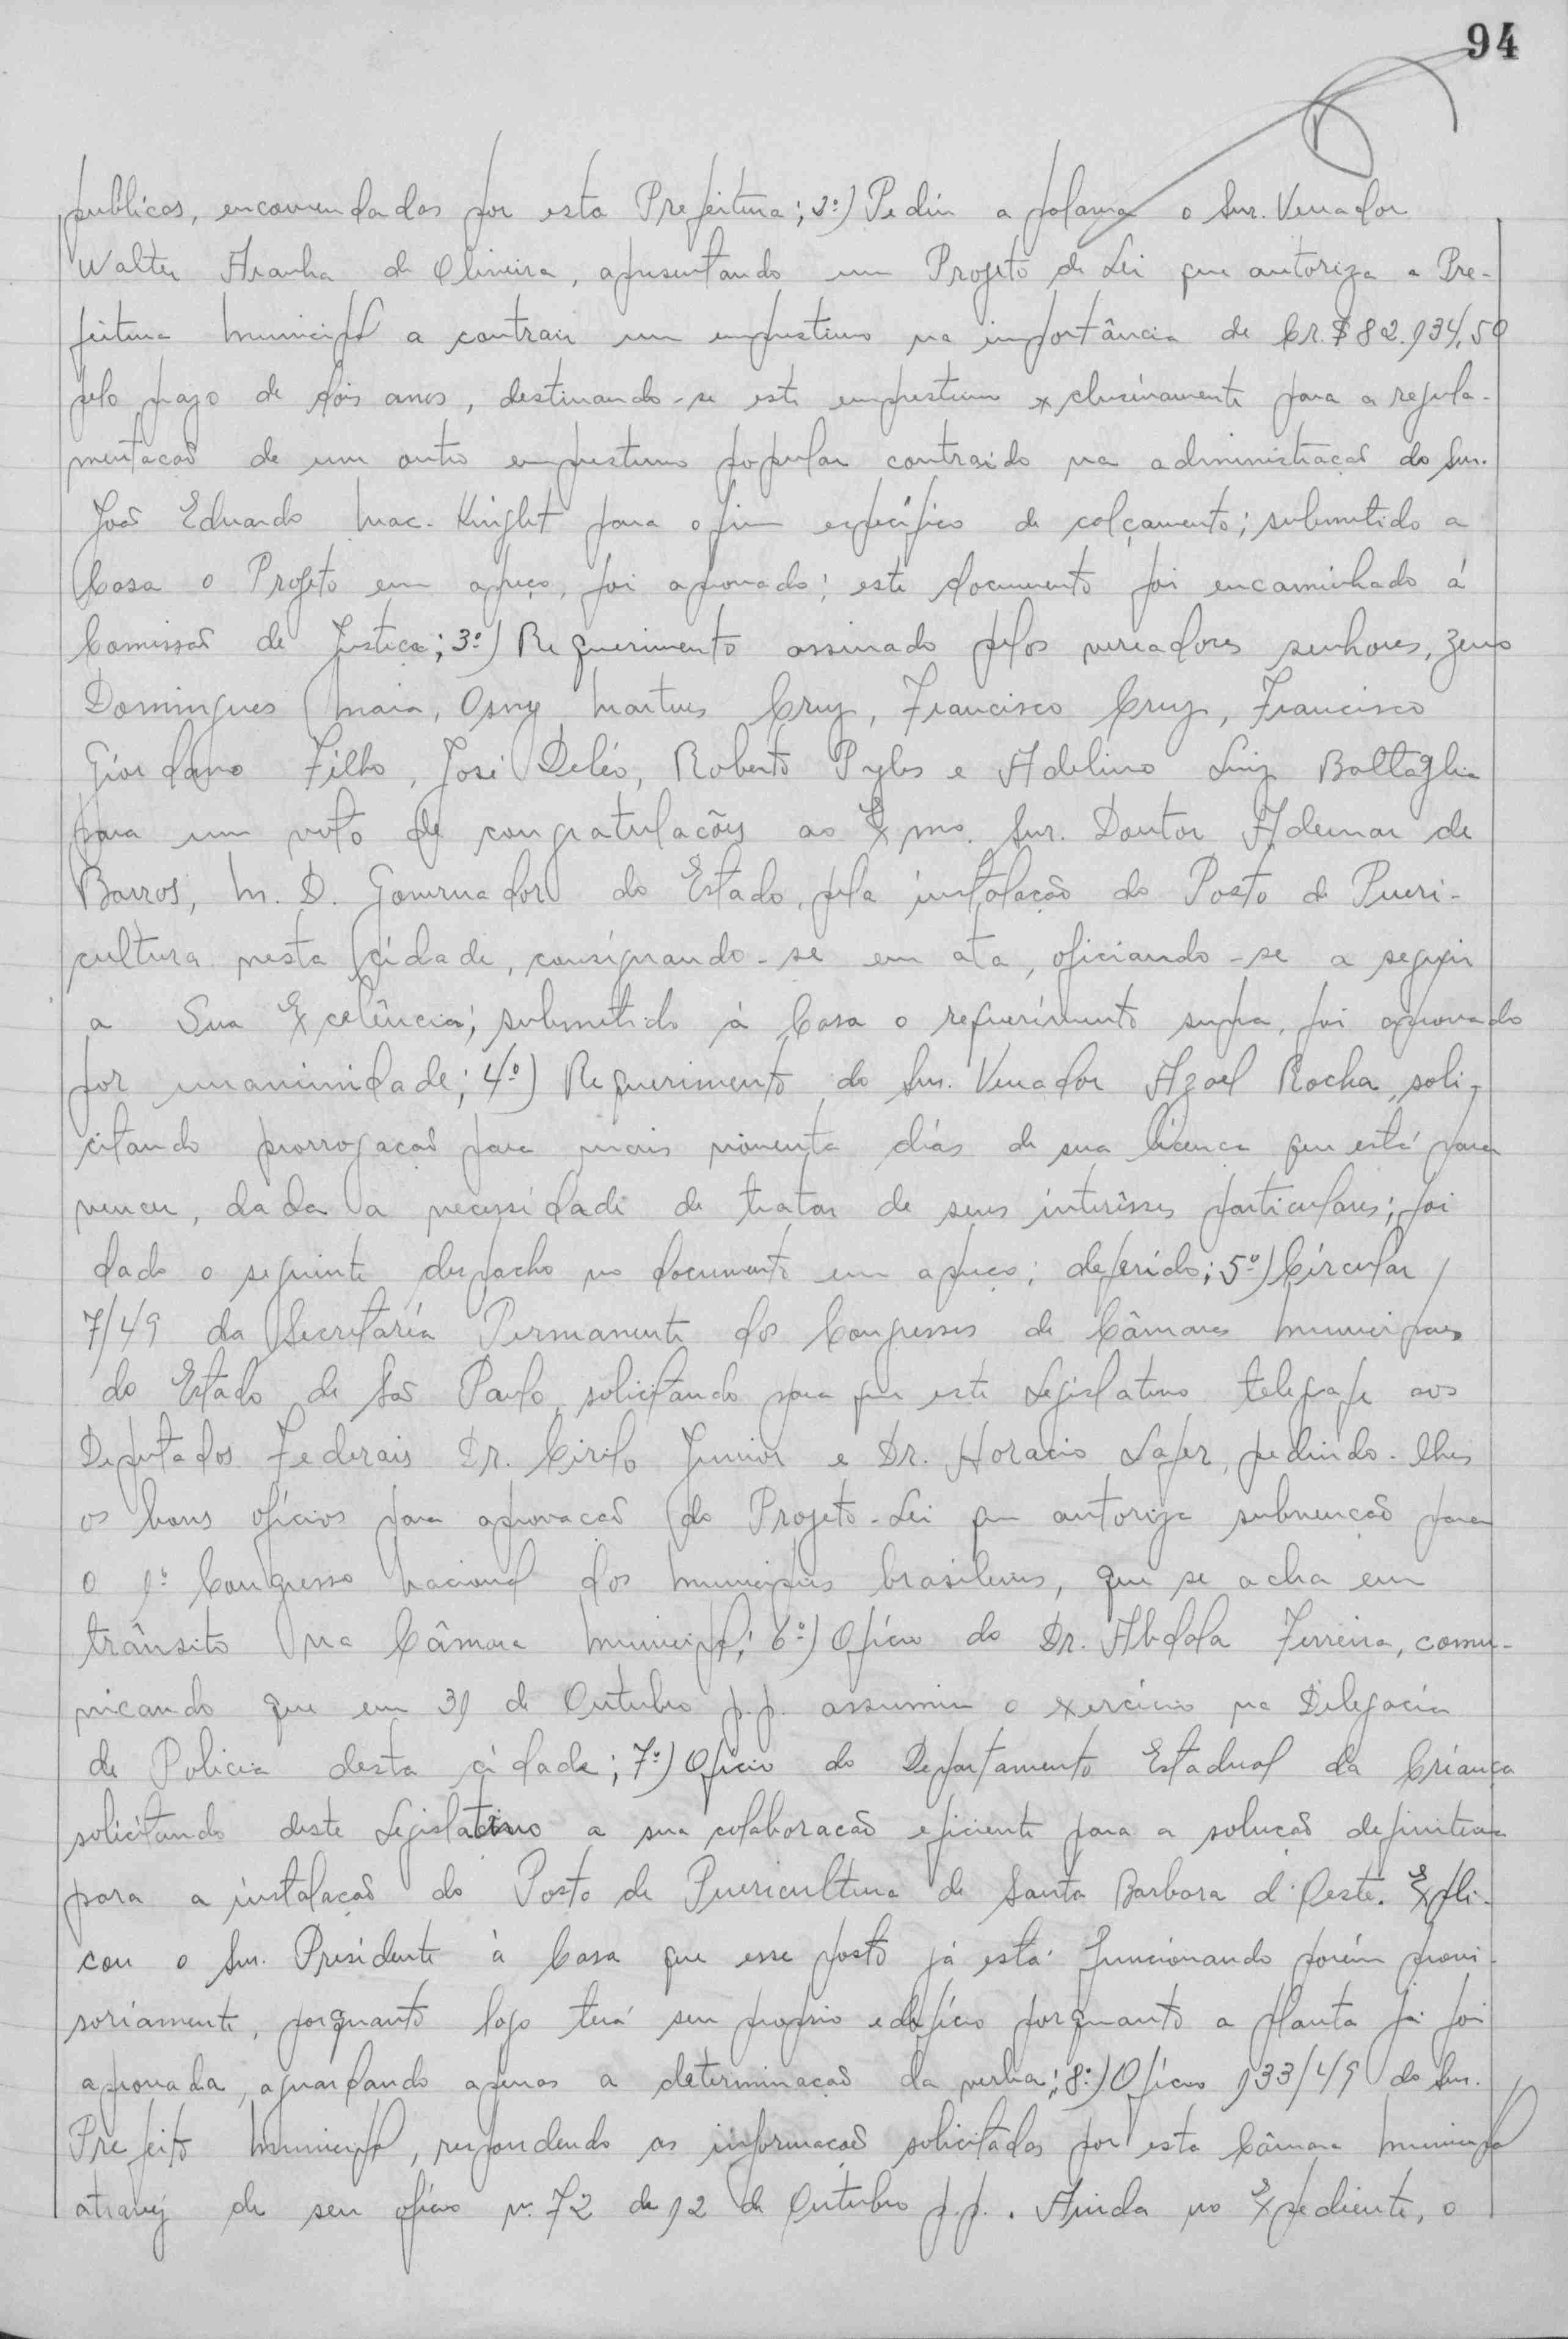 94
publicas, encomendadas por esta Prefeitura; 2º) Pediu a palavra o Snr. Vereador
Walter Aranha de Oliveira, apresentando um Projeto de Lei que autoriza a Pre-
feitura Municipal a contrair um emprestimo na importância de Cr.$ 82.134,50
pelo prazo de dois anos, destinando-se este emprestimo exclusivamente para a regula-
mentacaõ de um outro emprestimo popular contraido na administraçaõ do Snr.
Joaõ Eduardo Mac-Knight para o fim especifico de calçamento; submetido a
Casa o Projeto em apreço, foi aprovado; este documento foi encaminhado á
Comissaõ de Justica; 3º) Requerimento assinado pelos vereadores senhores, Zeno
Domingues Maia, Osny Martins Cruz, Francisco Cruz, Francisco
Giordano Filho, José Deléo, Roberto Pyles e Adelino Luiz Battaglia
para um voto de congratulacões ao Exmo. Snr. Doutor Ademar de
Barros, M. D. Governador do Estado, pela instalação do Posto de Pueri-
cultura nesta cidade, consignando-se em ata, oficiando-se a seguir
a Sua Excelência; submetido à Casa o requerimento supra, foi aprovado
por unanimidade; 4º) Requerimento do Snr. Vereador Azael Rocha, soli-
citando prorrogacaõ para mais noventa dias de sua licenca que está para
vencer, dada a necessidade de tratar de seus interêsses particulares; foi
dado o seguinte despacho no documento em apreço; deferido; 5º) Circular
7/49 da Secretaria Permanente dos Congressos de Câmaras Municipais
do Estado de Saõ Paulo, solicitando para que este Legislativo telegrafe aos
Deputados Federais Dr. Cirilo Junior e Dr. Horacio Lafer, pedindo-lhes
os bons ofícios para aprovacaõ do Projeto-Lei que autoriza subvencaõ para
o 1º Congresso Nacional dos Municipios brasileiros, que se acha em
trânsito na Câmara Municipal; 6º) Oficio do Dr. Abdala Ferreira, comu-
nicando que em 31 de Outubro p.p. assumiu o exercicio na Delegacia
de Policia desta cidade; 7º) Oficio do Departamento Estadual da Criança
solicitando deste Legislativo a sua colaboracaõ eficiente para a solucaõ definitiva
para a instalacaõ do Posto de Puericultura de Santa Barbara d'Oeste. Expli-
cou o Snr. Presidente à Casa que esse posto já está funcionando porém provi-
soriamente, porquanto logo terá seu proprio edifício porquanto a planta já foi
aprovada, aguardando apenas a determinacaõ da verba; 8º) Ofício 133/49 do Snr.
Prefeito Municipal, respondendo as informacaõ solicitadas por esta Câmara Municipal
atravez de seu ofício nº 72 de 12 de Outubro p.p.. Ainda no Expediente, o